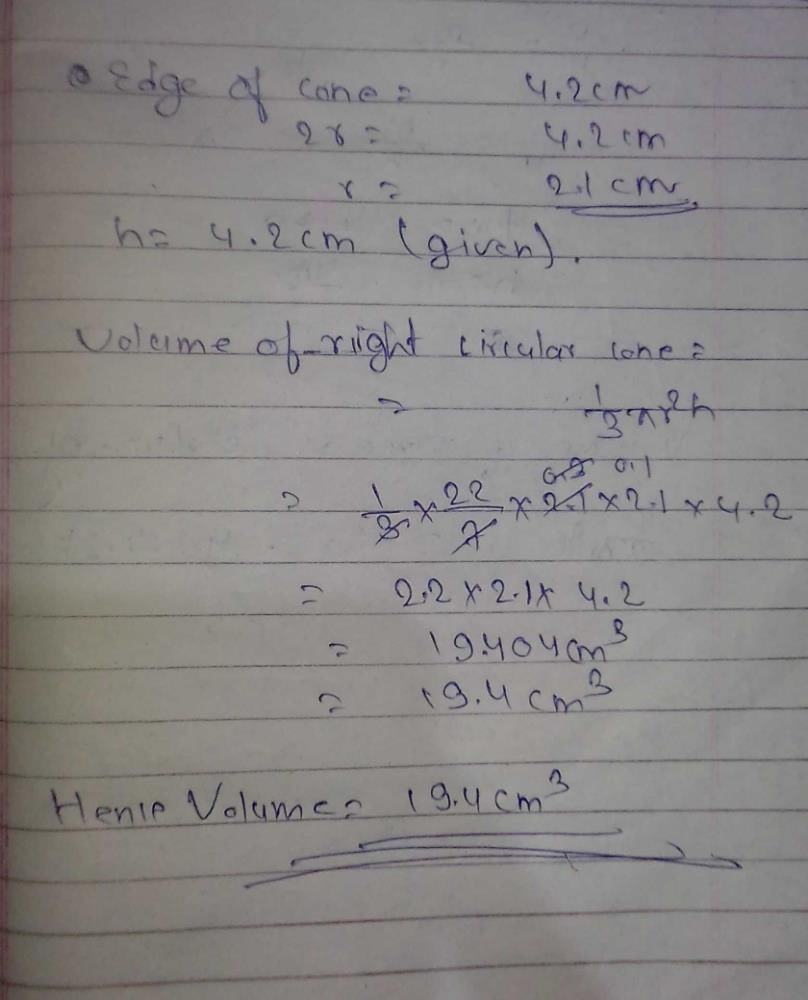 Edge of cone = 4.2cm
2r = 4.2cm
r = 2.1 cm
h = 4.2cm (given).
Volume of right circular cone =
= 1/3 πr²h
0.1
= 1/3 × 22/7 × 2.1 × 2.1 × 4.2
= 2.2 × 2.1 × 4.2
= 19.404cm³
= 19.4 cm³
Volume = 19.4cm³